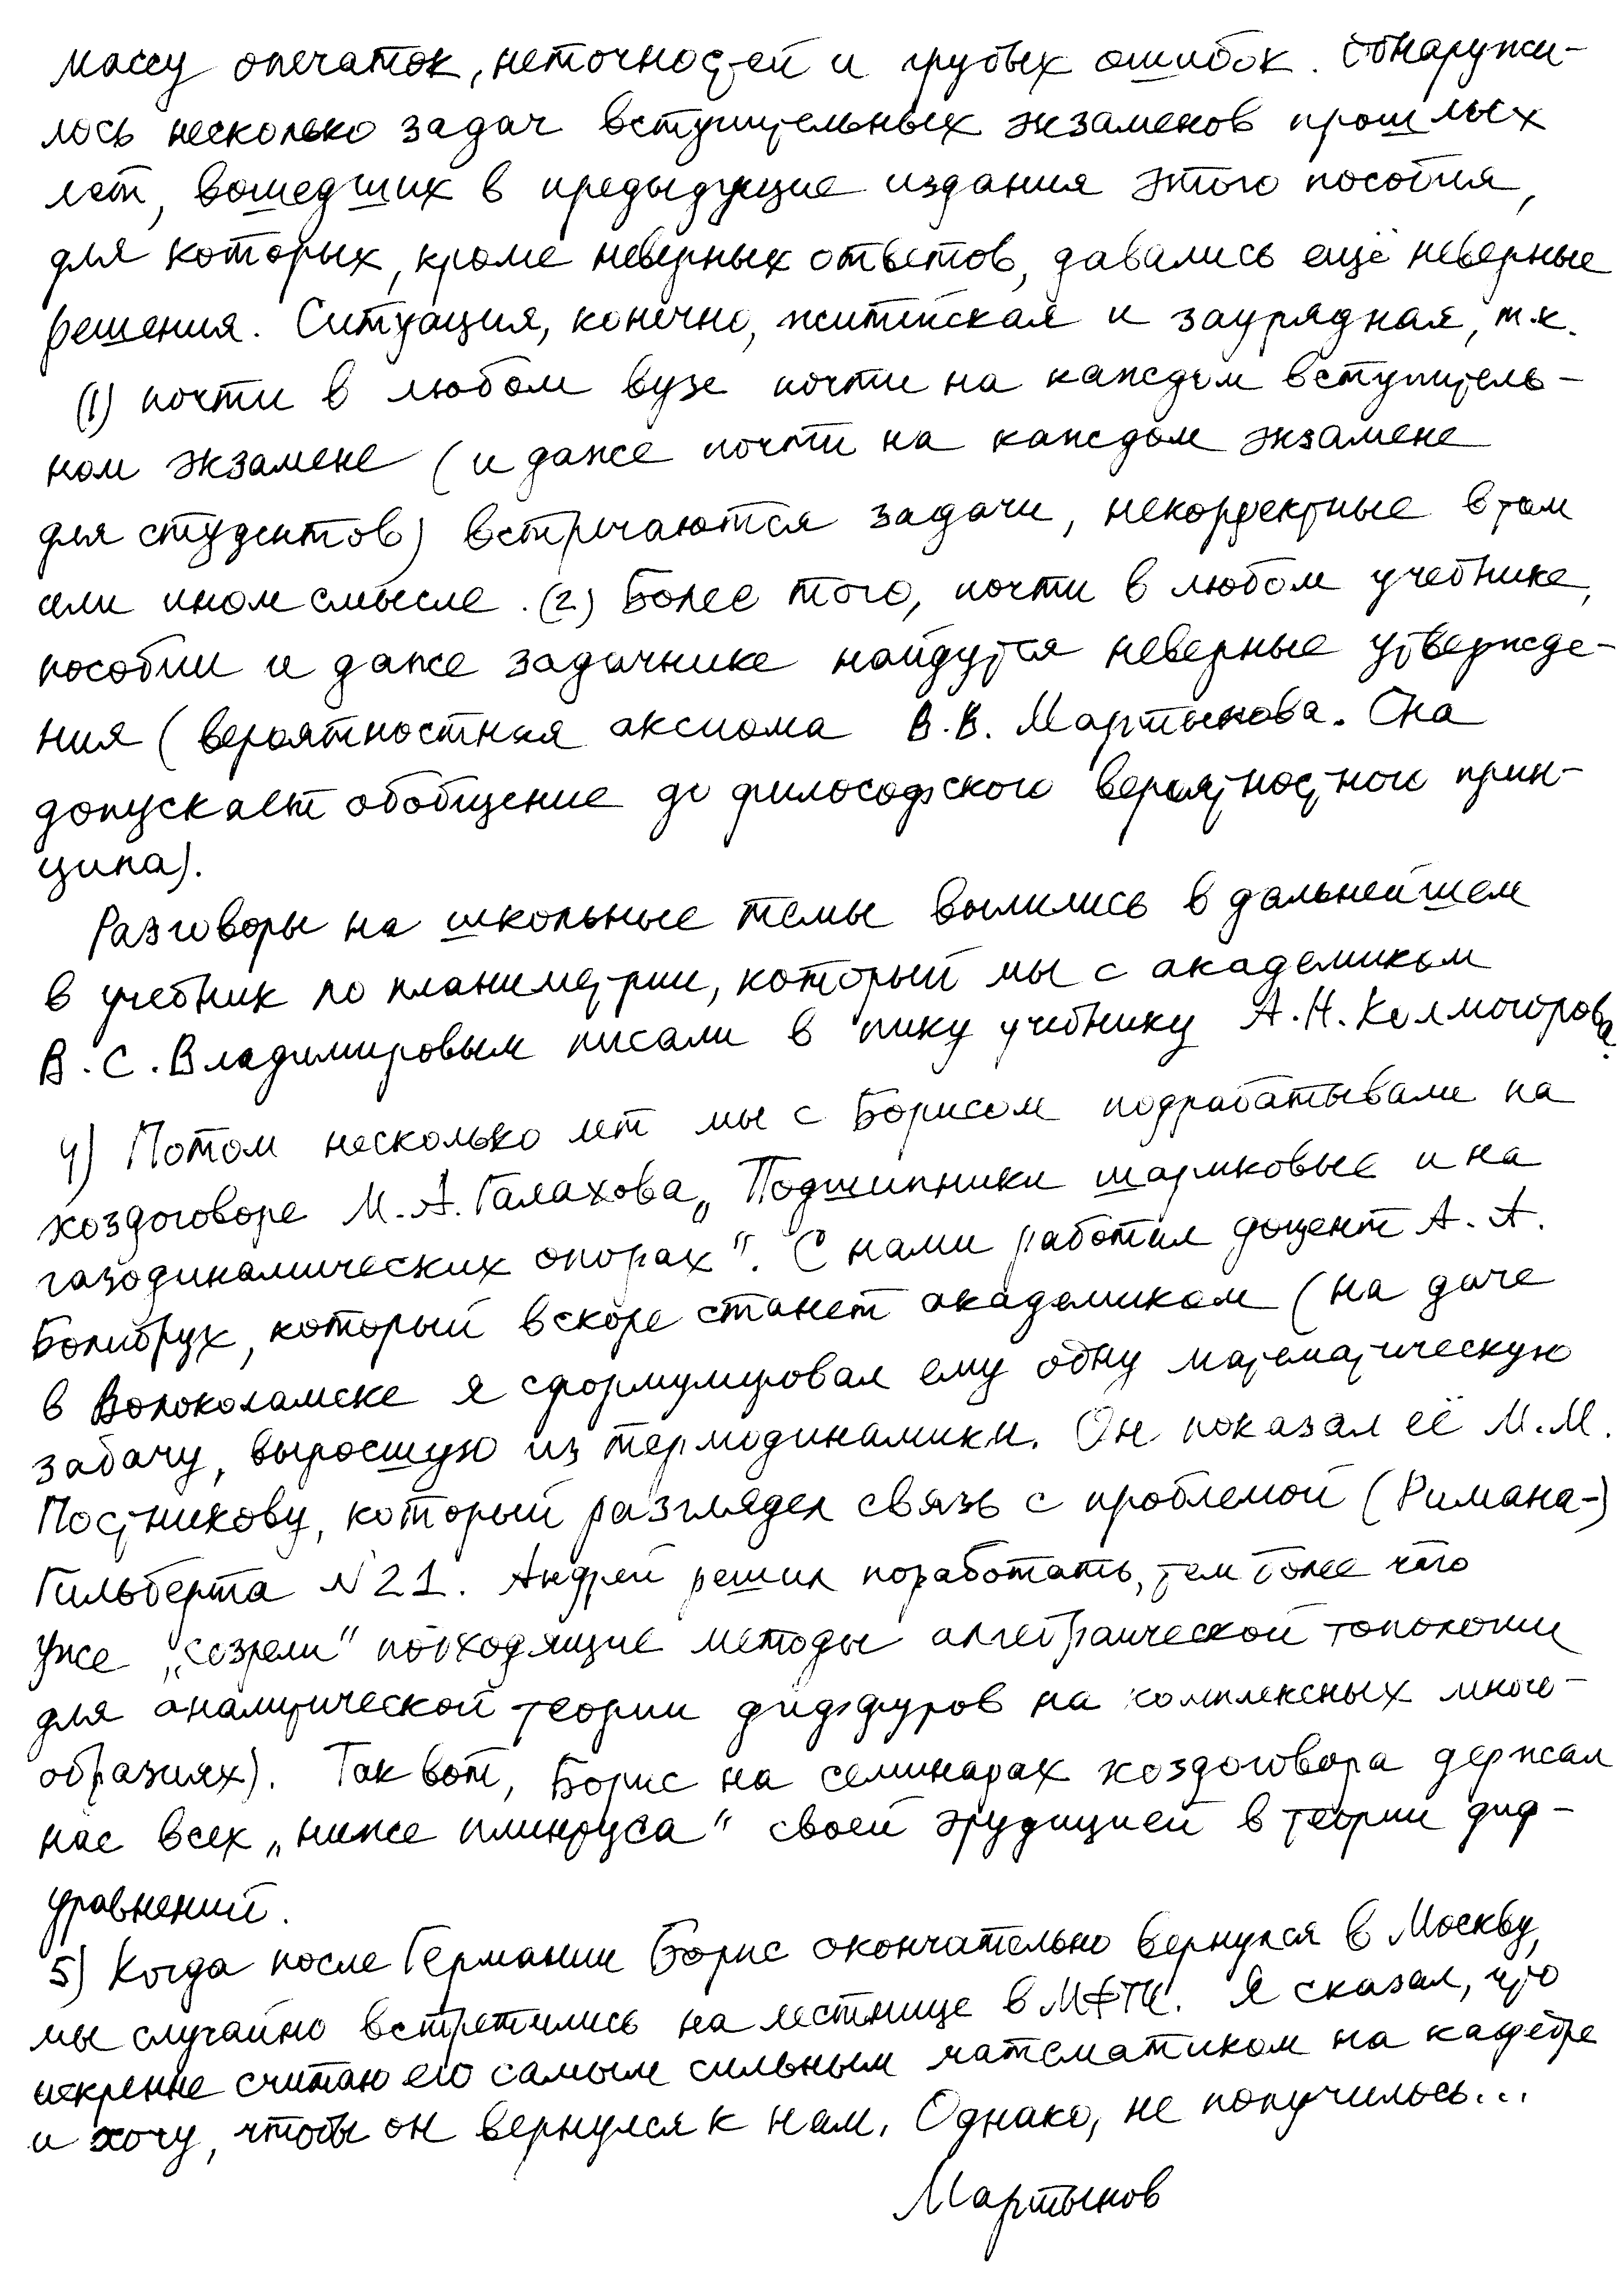 массу опечаток, неточностей и грубых ошибок. Обнаружи-
лось несколько задач вступительных экзаменов прошлых
лет, вошедших в предыдущие издания этого пособия,
для которых, кроме неверных ответов, давались ещё неверные
решения. Ситуация, конечно, житейская и заурядная, т.к.
(1) почти в любом вузе почти на каждом вступитель-
ном экзамене (и даже почти на каждом экзамене
для студентов) встречаются задачи, некорректные в том
или ином смысле. (2) Более того, почти в любом учебнике,
пособии и даже задачнике найдутся неверные утвержде-
ния (вероятностная аксиома В.В. Мартынова. Она
допускает обобщение до философского вероятностного прин-
ципа).
Разговоры на школьные темы вылились в дальнейшем
в учебник по планиметрии, который мы с академиком
В.С. Владимировым писали в пику учебнику А.Н. Колмогорова.
4) Потом несколько лет мы с Борисом подрабатывали на
хоздоговоре М.А. Галахова „Подшипники шариковые и на
газодинамических опорах". С нами работал доцент А.А.
Болибрух, который вскоре станет академиком (на даче
в Волоколамске я сформулировал ему одну математическую
задачу, выросшую из термодинамики. Он показал её М.М.
Постникову, который разглядел связь с проблемой (Римана-)
Гильберта №21. Андрей решил поработать, тем более что
уже „созрели" подходящие методы алгебраической топологии
для аналитической теории дифференциров на комплексных много-
образиях). Так вот, Борис на семинарах хоздоговора держал
нас всех „ниже плинтуса" своей эрудицией в теории диф-
уравнений.
5) Когда после Германии Борис окончательно вернулся в Москву,
мы случайно встретились на лестнице в МФТИ. Я сказал, что
искренне считаю его самым сильным математиком на кафедре
и хочу, чтобы он вернулся к нам. Однако, не получилось...
Мартынов